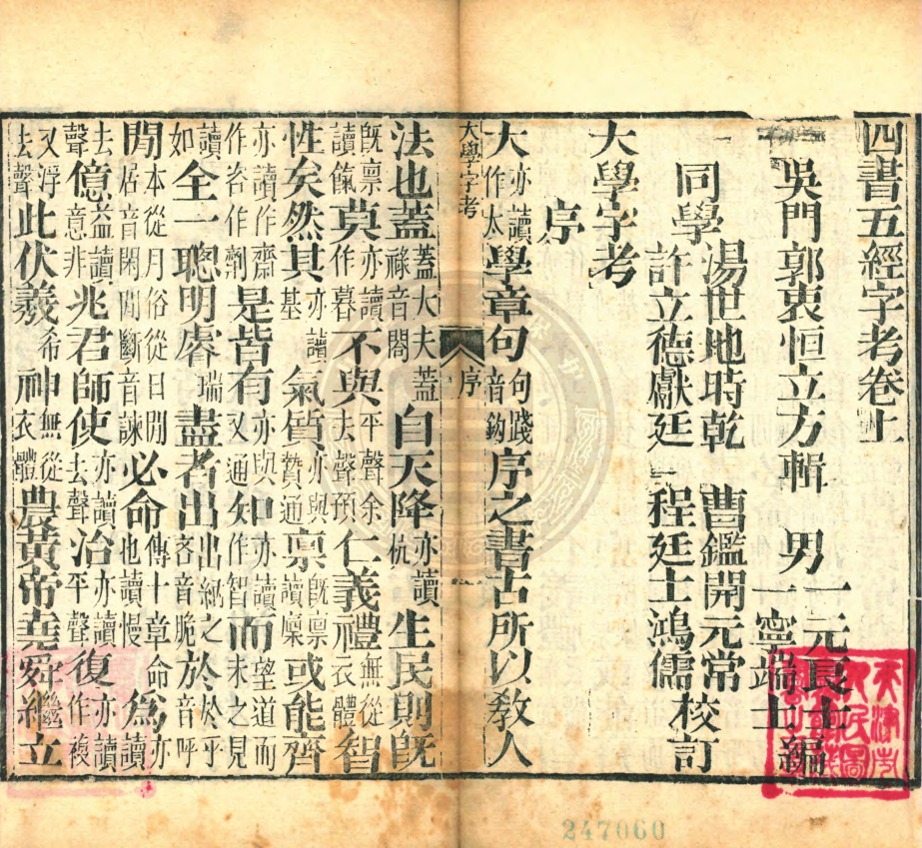 四書五經字考卷上
吳門郭衷恒立方輯 男一元長士一寧端士編
同學湯世地時乾 曹鑑開元常
許立德獻廷 程廷士鴻儒校訂
大學字考
序
大亦讀作太學章句句踐音鈎序之書古所以教人
大學字考 序
法也蓋蓋大夫蓋祿音閤自天降亦讀杭生民則旣
旣稟讀餼莫亦讀作暮不與平聲余去聲預仁義禮無從衣體智
性矣然其亦讀基氣質亦與贄通稟旣稟讀懍或能齊
亦讀作齋作咨作劑是皆有亦與又通知亦讀作智而望道而未之見
讀如全一聰明睿瑞盡者出出納之吝音脆於於乎音呼
閒本從月俗從日閒居音閑間斷音諫必命傳十章命也讀慢爲亦讀
去聲億益讀意非兆君師使亦讀去聲治亦讀平聲復亦讀作複
又浮去聲此伏羲希神無從衣體農黃帝堯舜繼立
247060